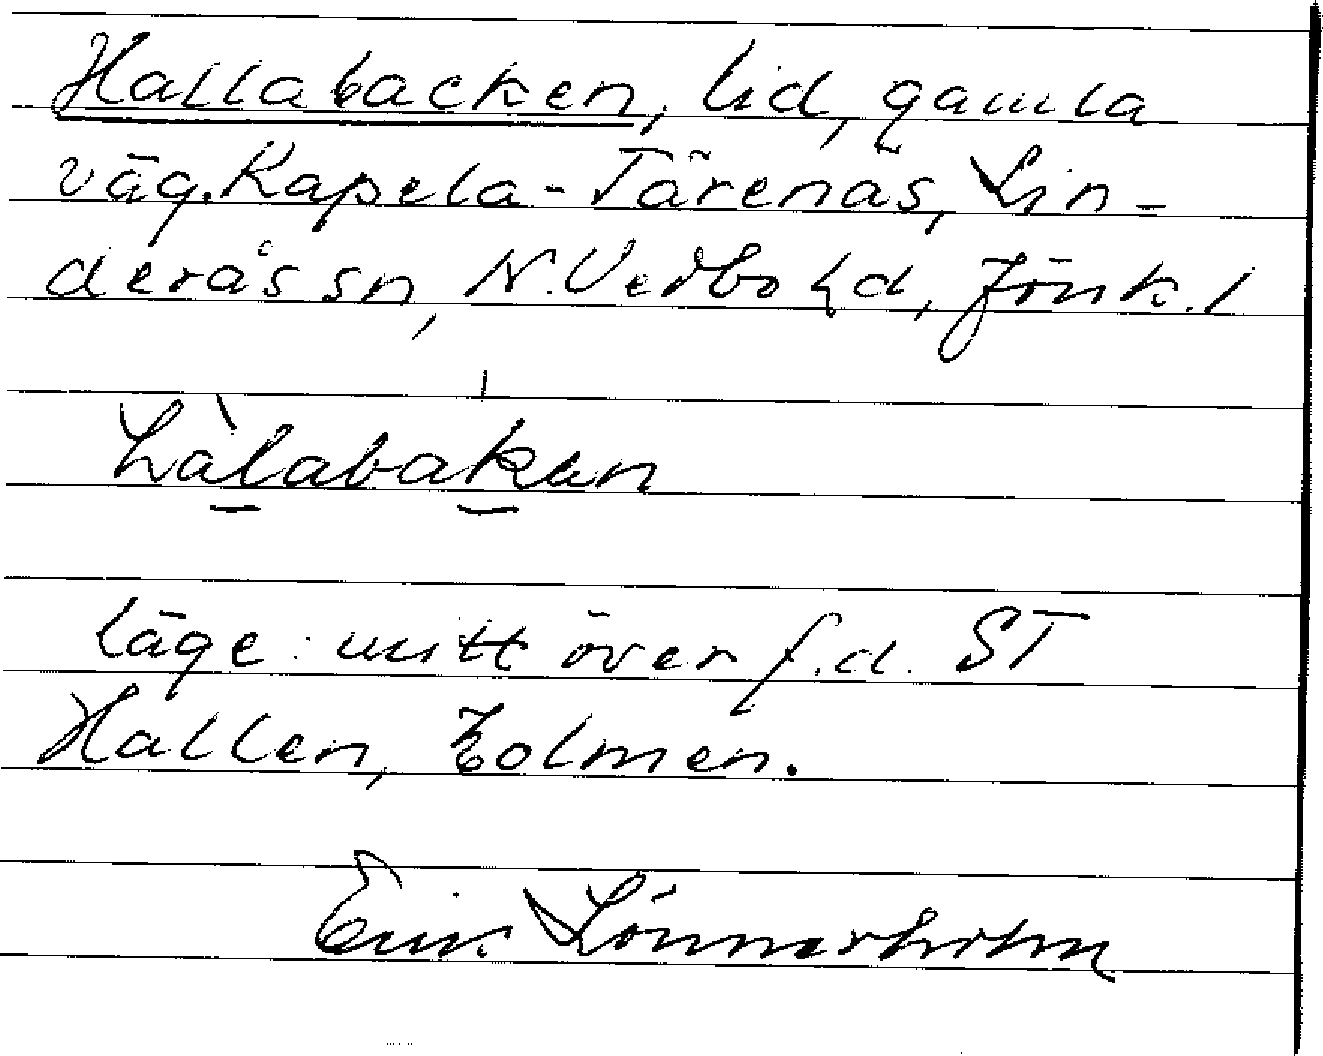 Hallabacken, lid, gamla
väg. Kapela-Tärenäs, Lin-
derås sn, N. Vedbo hd, Jönk. l
hàlabakan
läge: mitt över f.d. ST
Hallen, Holmen.
Erik Lönnerholm